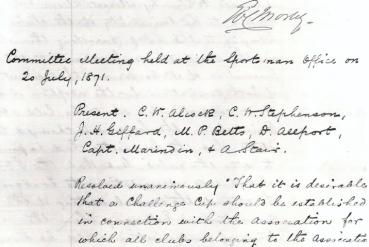 Committee Meeting held at the Sportsman Office on
20 July, 1871.
Present. C. W. Alcock, C. W. Stephenson,
J. H. Giffard, M. P. Betts, D. Allport,
Capt. Marindin, & A. Stair.
Resolved unanimously "That it is desirable
that a Challenge Cup should be established
in connection with the Association for
which all clubs belonging to the Association